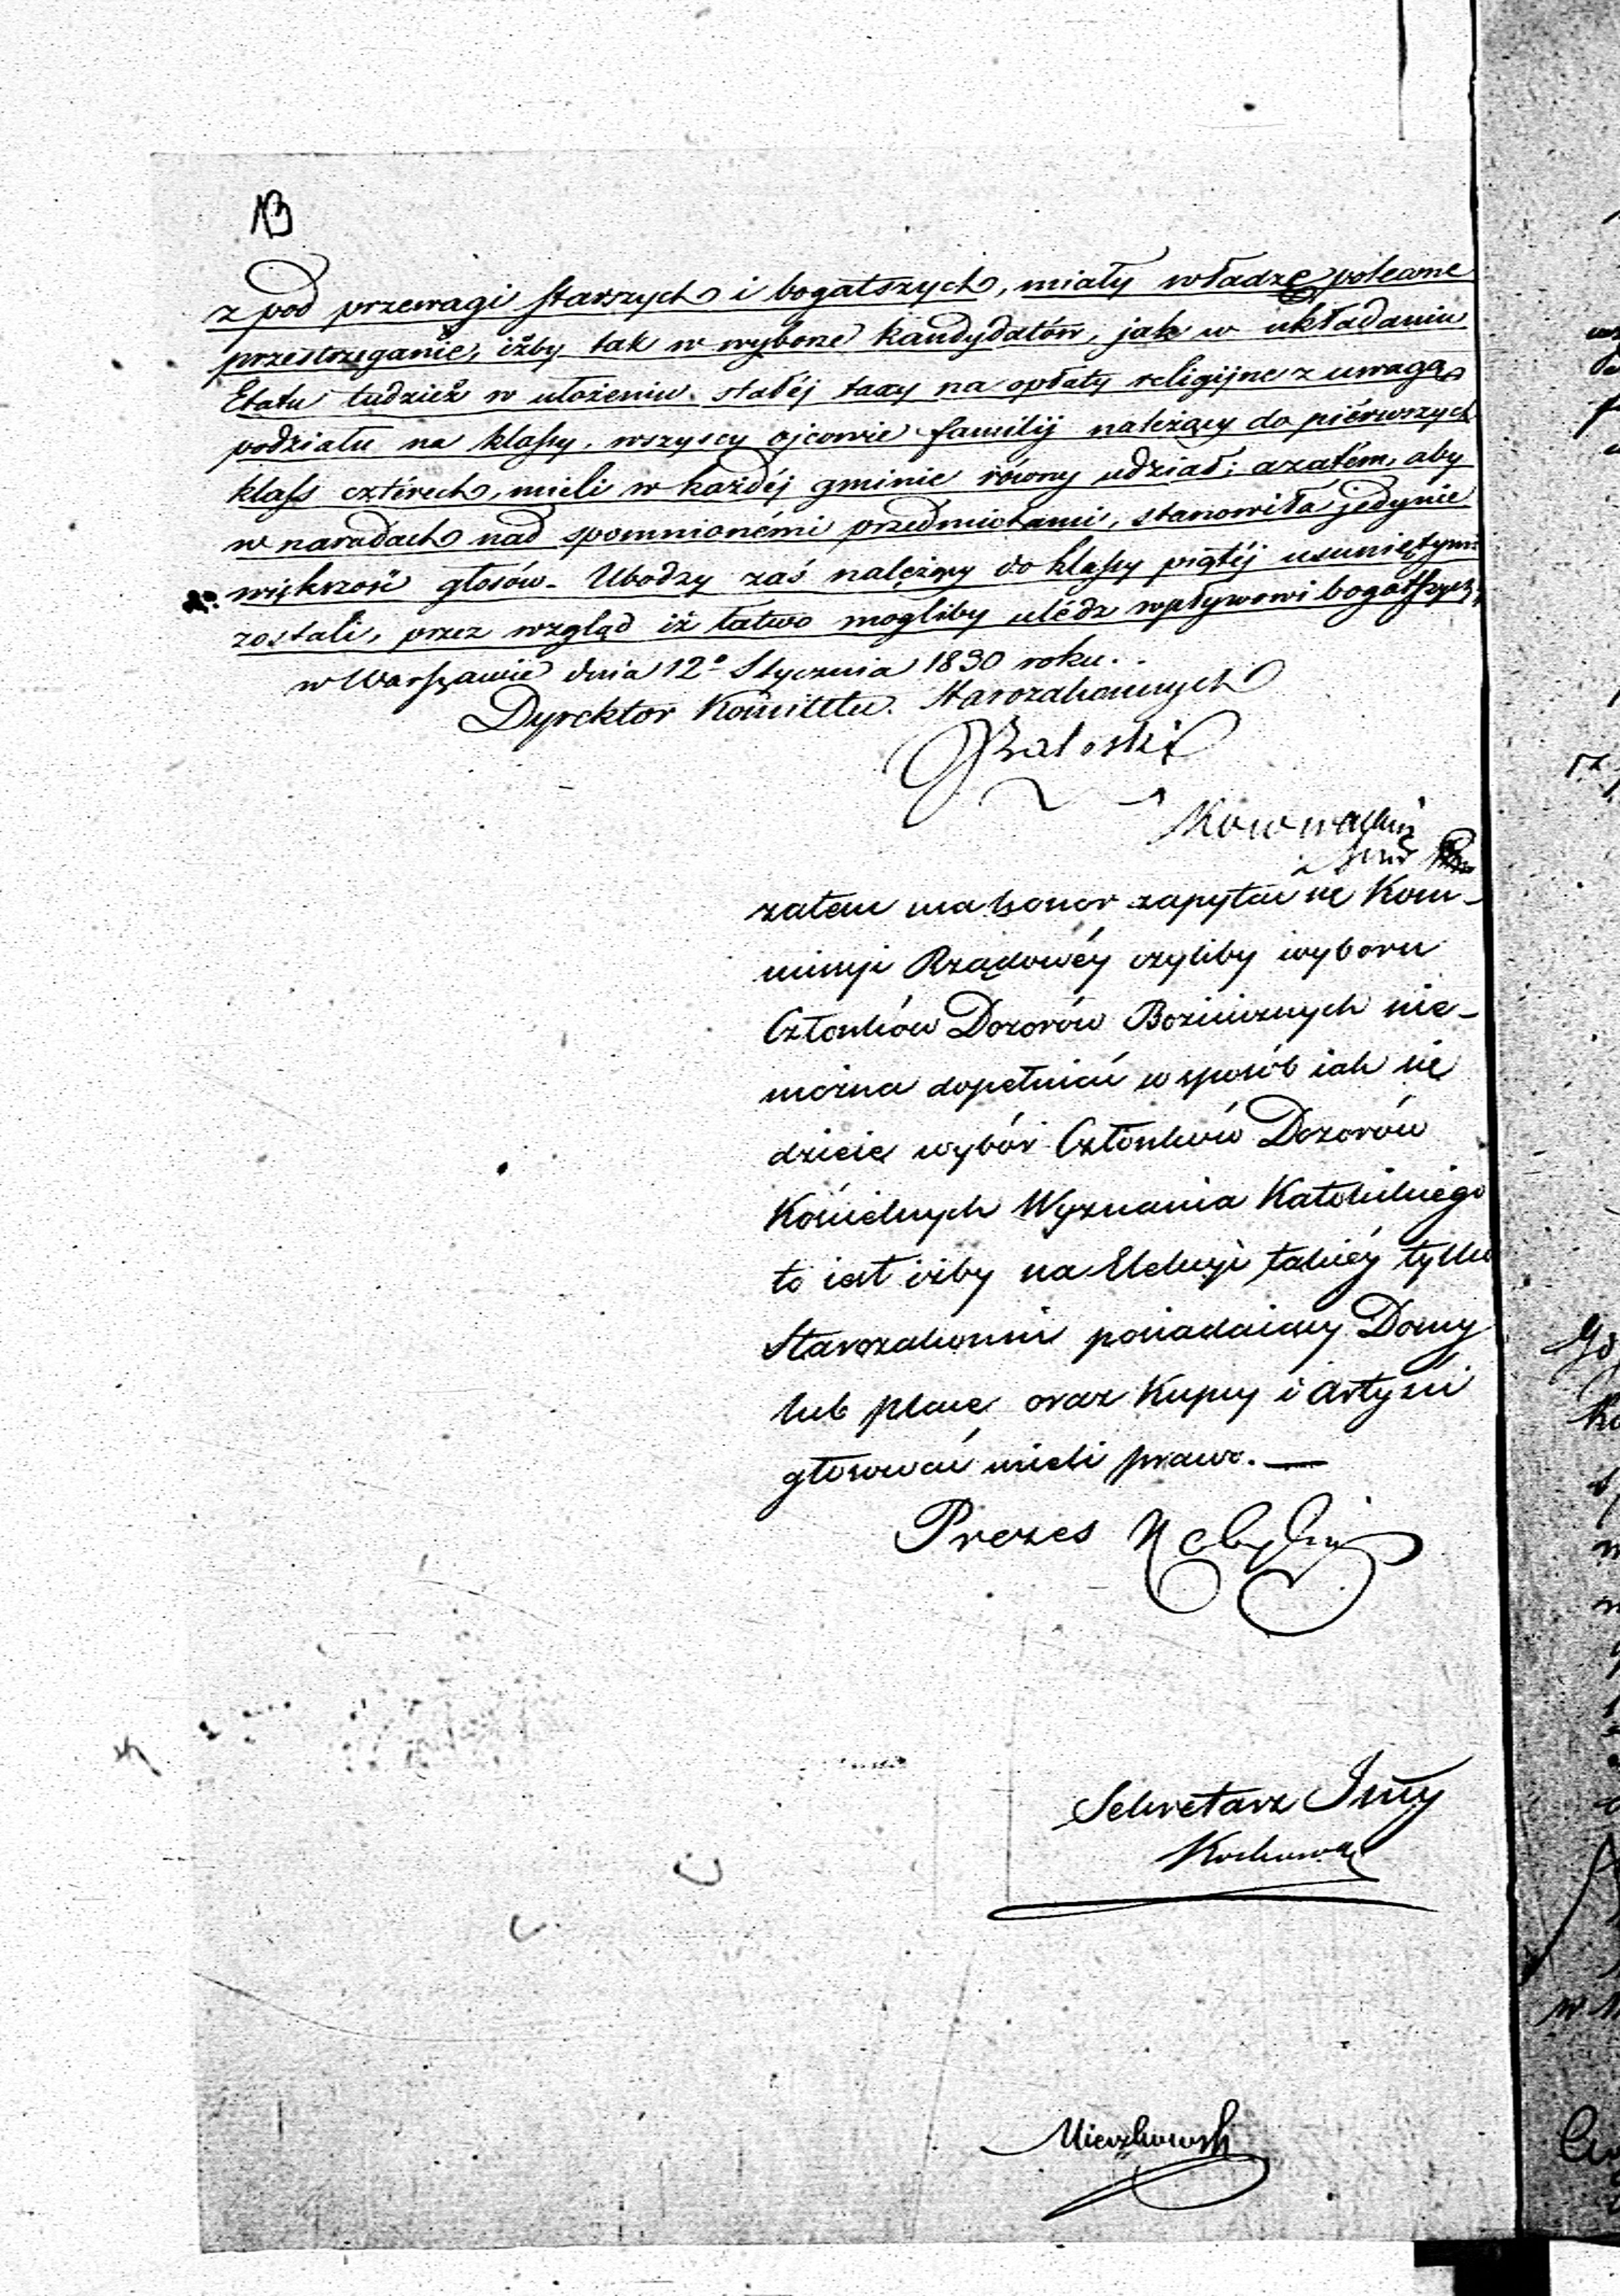 z pod przewagi starszych i bogatszych, miały władze polecone
przestrzeganie, iżby tak w wyborze kandydatów, jak w układaniu
Etatu tudzież w ułożeniu stałéj taxy na opłaty religijne z uwagą
podziału na klassy, wszyscy ojcowie familij należący do piérwszych
klass cztérech, mieli w każdéj gminie równy udział; azatém, aby
w naradach nad spomnionémi przedmiotami, stanowiła jedynie
większość głosów. Ubodzy zaś należący do klassy piątéj usuniętymi
zostali, przez wzgląd iż łatwo mogliby uledz wpływowi bogatszych.
w Warszawie dnia 12º Stycznia 1830 roku.
Dyrektor Komitetu Starozakonnych
zatem ma honor zapytać się Kom-
missyi Rządowéy czyliby wyboru
Członków Dozorów Bożniczych nie-
można dopełniać w sposób iak się
dzieie wybór Członków Dozorów
Kościelnych Wyznania Katolickiego
to iest iżby na Elekcyi takiéy tylko
Starozakonni posiadaiący Domy
lub place oraz Kupcy i Artyści
głosować mieli prawo. —
Prezes
Sekretarz Jlny
Mieczkowski